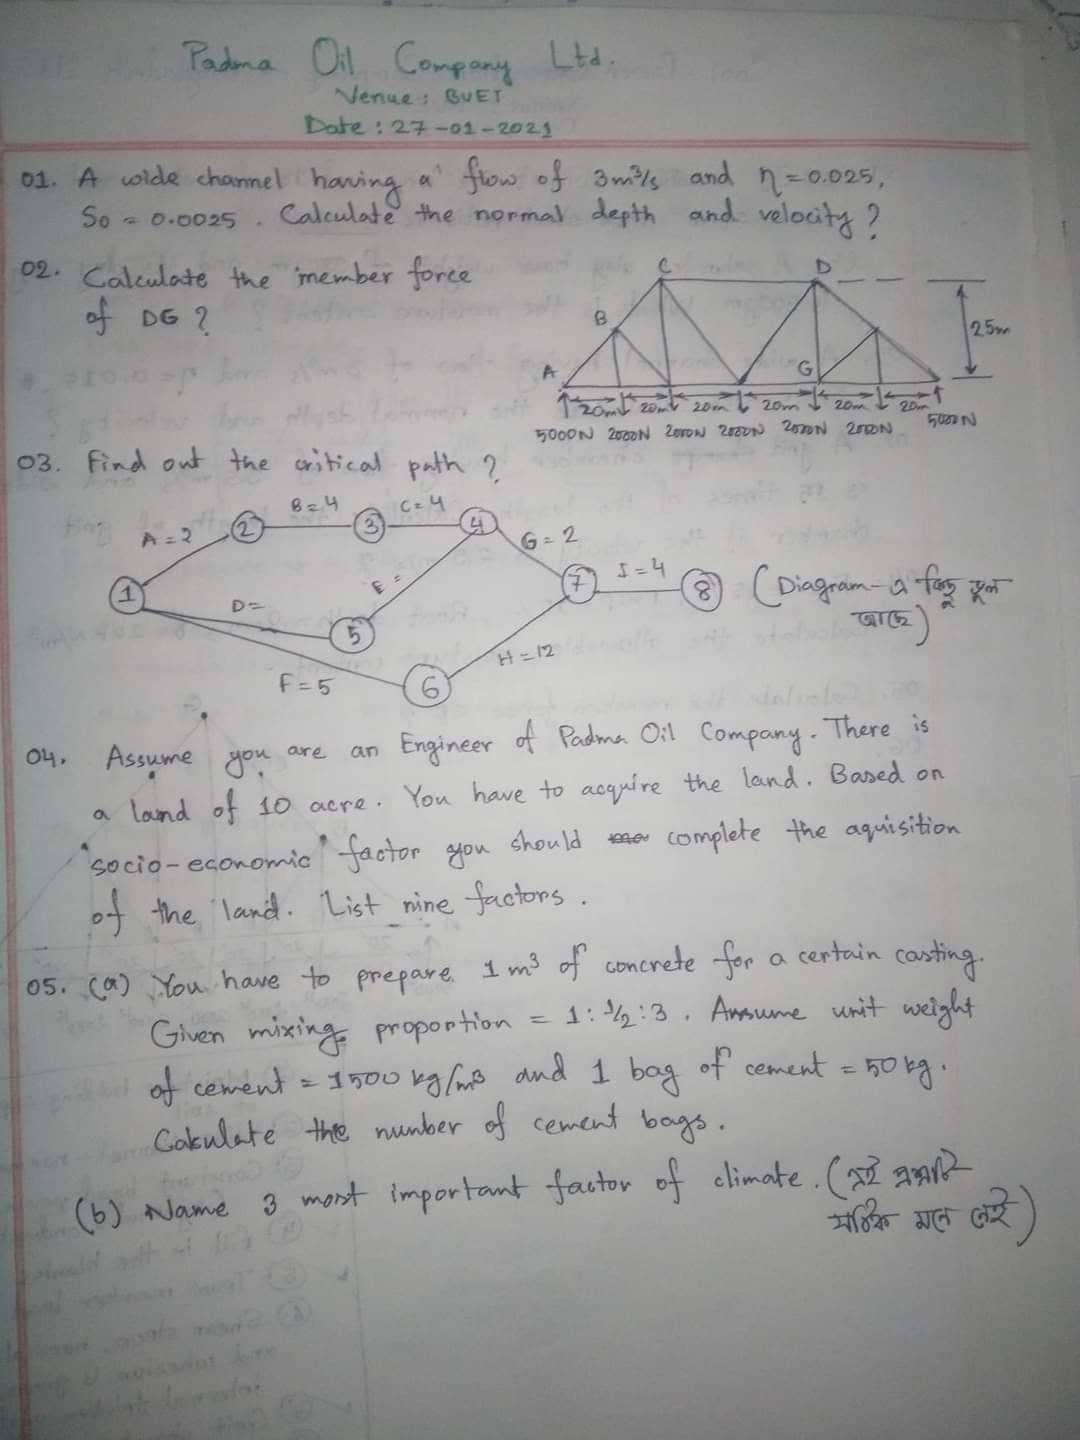 Padma Oil Company Ltd.
Venue: BUET
Date: 27-01-2021
01. A wide channel having a flow of 3m³/s and η=0.025,
So = 0.0025. Calculate the normal depth and velocity?
02. Calculate the member force
of DG?
C D
B
25m
A G
20m 20m 20m 20m 20m 20m
5000N 2000N 2000N 2000N 2000N 2000N 5000N
03. Find out the critical path?
A=2 B=4 C=4
2 3 4
G=2
E=
I=4
1 7 8
D=
5
H=12
F=5
6
(Diagram-এ কিছু ভুল
আছে)
04. Assume you are an Engineer of Padma Oil Company. There is
a land of 10 acre. You have to acquire the land. Based on
socio-economic factor you should complete the aquisition
of the land. List nine factors.
05. (a) You have to prepare 1m³ of concrete for a certain casting.
Given mixing proportion = 1:1/2:3. Assume unit weight
of cement = 1500 kg/m³ and 1 bag of cement = 50 kg.
Calculate the number of cement bags.
(b) Name 3 most important factor of climate. (এই প্রশ্নটি
সঠিক মনে নেই)